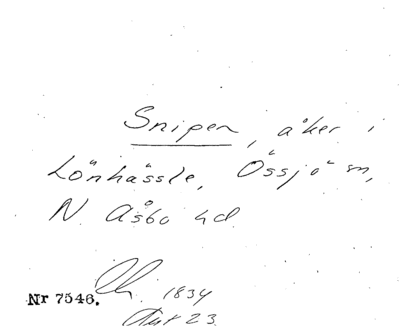 Snipen, åker i
Lönhässle, Össjö sn,
N. Åsbo hd.
1834
Nr 7546.
23